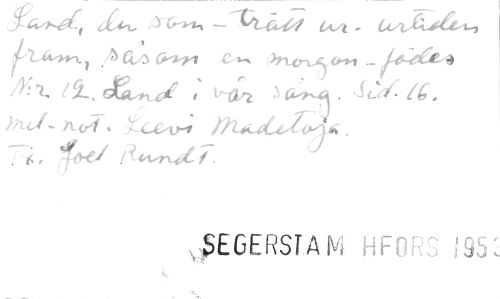 Land, du som - trätt ur. urtiden
fram, såsom en morgon - födes
N:r 12. Land i vår sång. Sid. 16.
mel-not. Leevi Madetoja.
Tx. Joel Rundt.
SEGERSTAM HFORS 1953